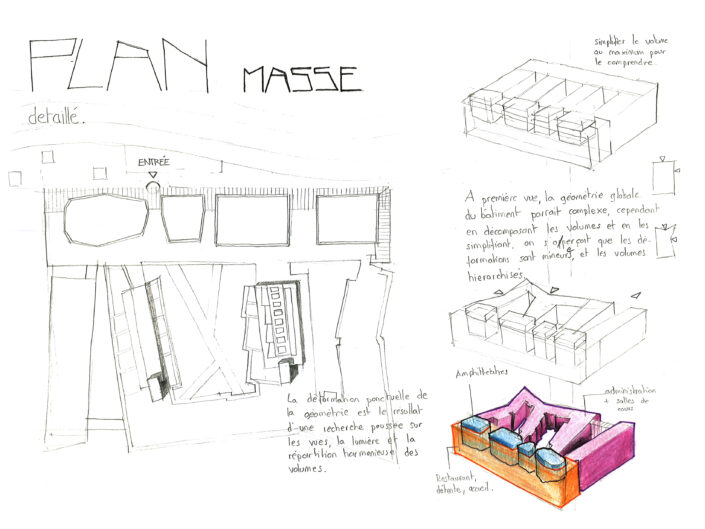 PLAN MASSE
detaillé.
ENTRÉE
La déformation ponctuelle de
la géométrie est le résultat
d'une recherche poussée sur
les vues, la lumière et la
répartition harmonieuse des
volumes.
simplifier le volume
au maximum pour
le comprendre.
A première vue, la géométrie globale
du bâtiment parrait complexe, cependant
en décomposant les volumes et en les
simplifiant, on s'aperçoit que les dé-
formations sont mineurs, et les volumes
hierarchisés.
Amphithéatres
administration
+ salles de
cours
Restaurant,
détente, accueil.